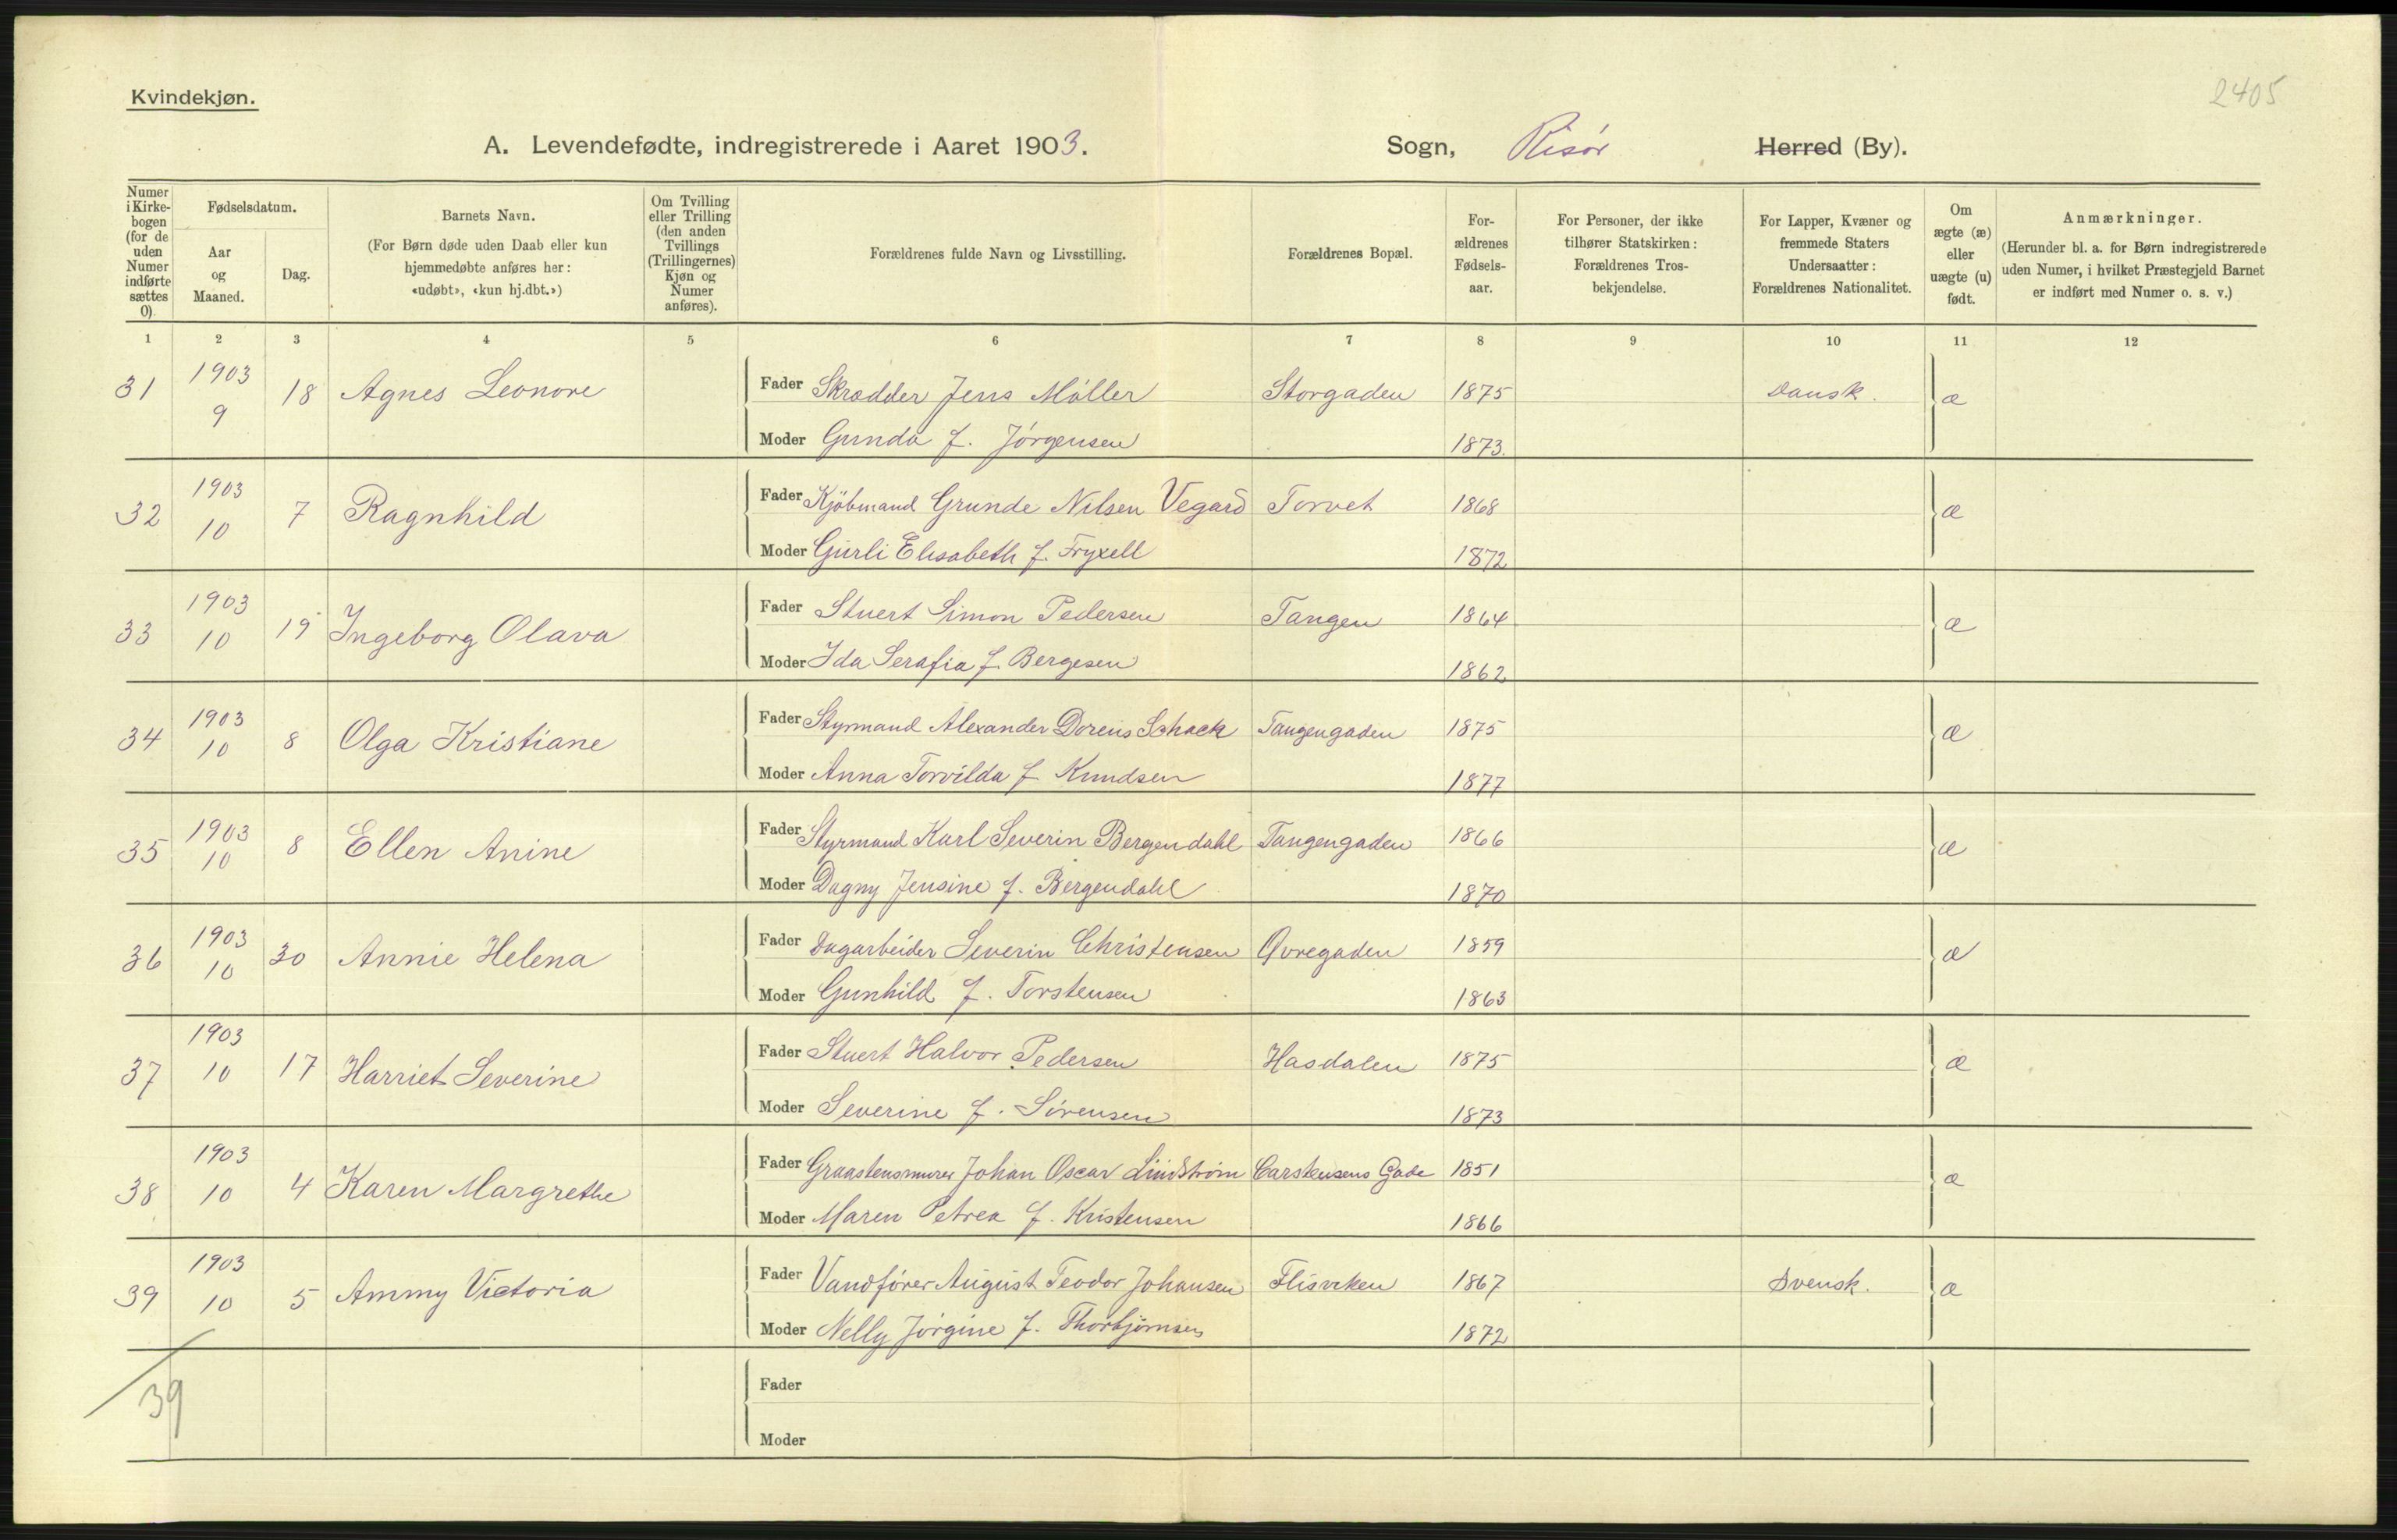 2405
Kvindekjøn.
A. Levendefødte, indregistrerede i Aaret 1903. Sogn, Risör Herred (By).
Numer i Kirkebogen (for de uden Numer indførte sættes 0).
Fødselsdatum.
Aar og Maaned.
Dag.
Barnets Navn.
(For Børn døde uden Daab eller kun hjemmedøbte anføres her: «udøbt», «kun hj.dbt.»)
Om Tvilling eller Trilling (den anden Tvillings (Trillingernes) Kjøn og Numer anføres).
Forældrenes fulde Navn og Livsstilling.
Forældrenes Bopæl.
Forældrenes Fødselsaar.
For Personer, der ikke tilhører Statskirken: Forældrenes Trosbekjendelse.
For Lapper, Kvæner og fremmede Staters Undersaatter: Forældrenes Nationalitet.
Om ægte (æ) eller uægte (u) født.
Anmærkninger.
(Herunder bl. a. for Børn indregistrerede uden Numer, i hvilket Præstegjeld Barnet er indført med Numer o. s. v.)
1 2 3 4 5 6 7 8 9 10 11 12
31 1903 9 18 Agnes Leonore Fader Skrædder Jens Möller Storgaden 1875 Dansk. æ
Moder Gunda f. Jörgensen 1873.
32 1903 10 7 Ragnhild Fader Kjöbmand Grunde Nilsen Vegard Torvet 1868 æ
Moder Gurli Elisabeth f. Fryxell 1872
33 1903 10 19 Ingeborg Olava Fader Stuert Simon Pedersen Tangen 1864 æ
Moder Ida Serafia f. Bergesen 1862
34 1903 10 8 Olga Kristiane Fader Styrmand Alexander Doreus Schack Tangengaden 1875 æ
Moder Anna Torvilda f Knudsen 1877
35 1903 10 8 Ellen Anine Fader Styrmand Karl Severin Bergendahl Tangengaden 1866 æ
Moder Dagny Jensine f. Bergendahl 1870
36 1903 10 30 Annie Helena Fader Dagarbeider Severin Christensen Øvregaden 1859 æ
Moder Gunhild f. Torstensen 1863
37 1903 10 17 Harriet Severine Fader Stuert Halvor Pedersen Hasdalen 1875 æ
Moder Severine f. Sörensen 1873
38 1903 10 4 Karen Margrethe Fader Graastensmurer Johan Oscar Lindström Carstensens Gade 1851 æ
Moder Maren Petrea f. Kristensen 1866
39 1903 10 5 Ammy Victoria Fader Vandförer August Teodor Johansen Flisviken 1867 Svensk. æ
Moder Nelly Jörgine f. Thorbjörnsen 1872
39 Fader
Moder